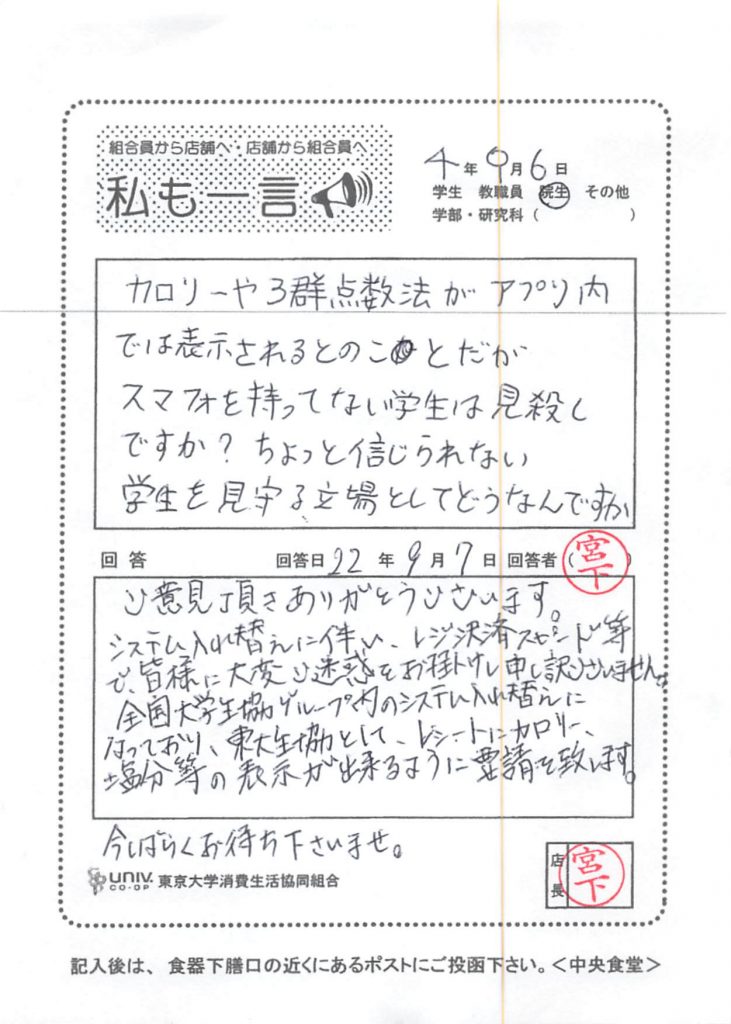 組合員から店舗へ・店舗から組合員へ
私も一言
4年9月6日
学生 教職員 院生 その他
学部・研究科( )
カロリーや3群点数法がアプリ内
では表示されるとのことだが
スマフォを持ってない学生は見殺し
ですか?ちょっと信じられない
学生を見守る立場としてどうなんですか
回答 回答日 22年9月7日 回答者( 宮下 )
ご意見頂きありがとうございます。
システム入れ替えに伴い、レジ決済スピード等
で、皆様に大変ご迷惑をお掛けし申し訳ございません。
全国大学生協グループ内のシステム入れ替えに
なっており、東大生協として、レシートにカロリー、
塩分等の表示が出来るように要請を致します。
今しばらくお待ち下さいませ。
univ. CO-OP 東京大学消費生活協同組合
店長 宮下
記入後は、食器下膳口の近くにあるポストにご投函下さい。<中央食堂>